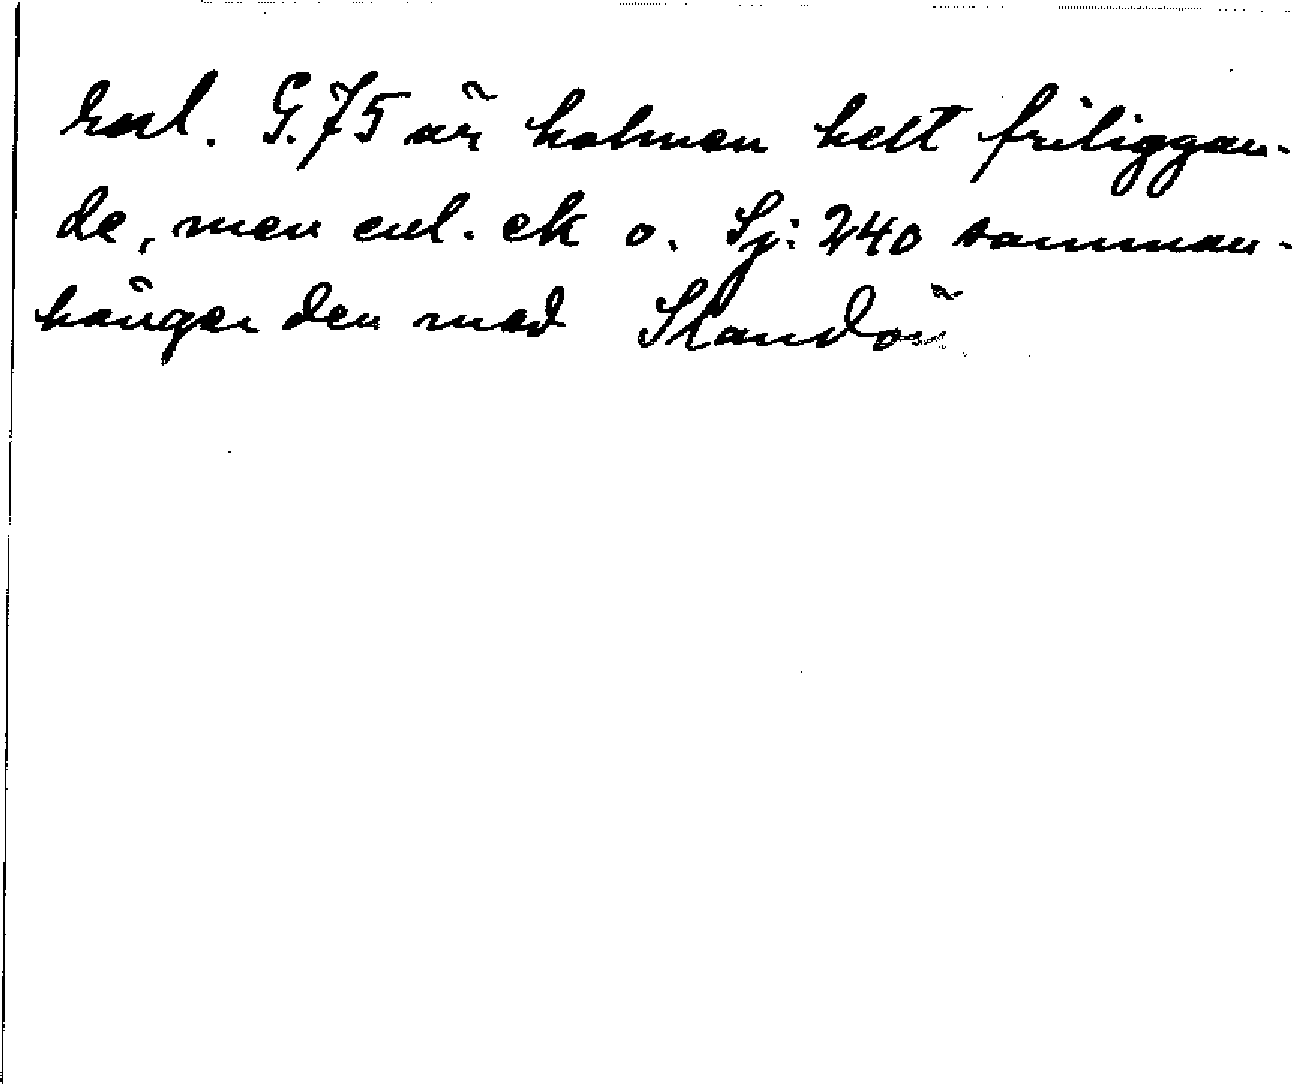 Enl. G.75 är holmen helt friliggan-
de, men enl. ek o. Sj: 240 samman-
hänger den med Skandön